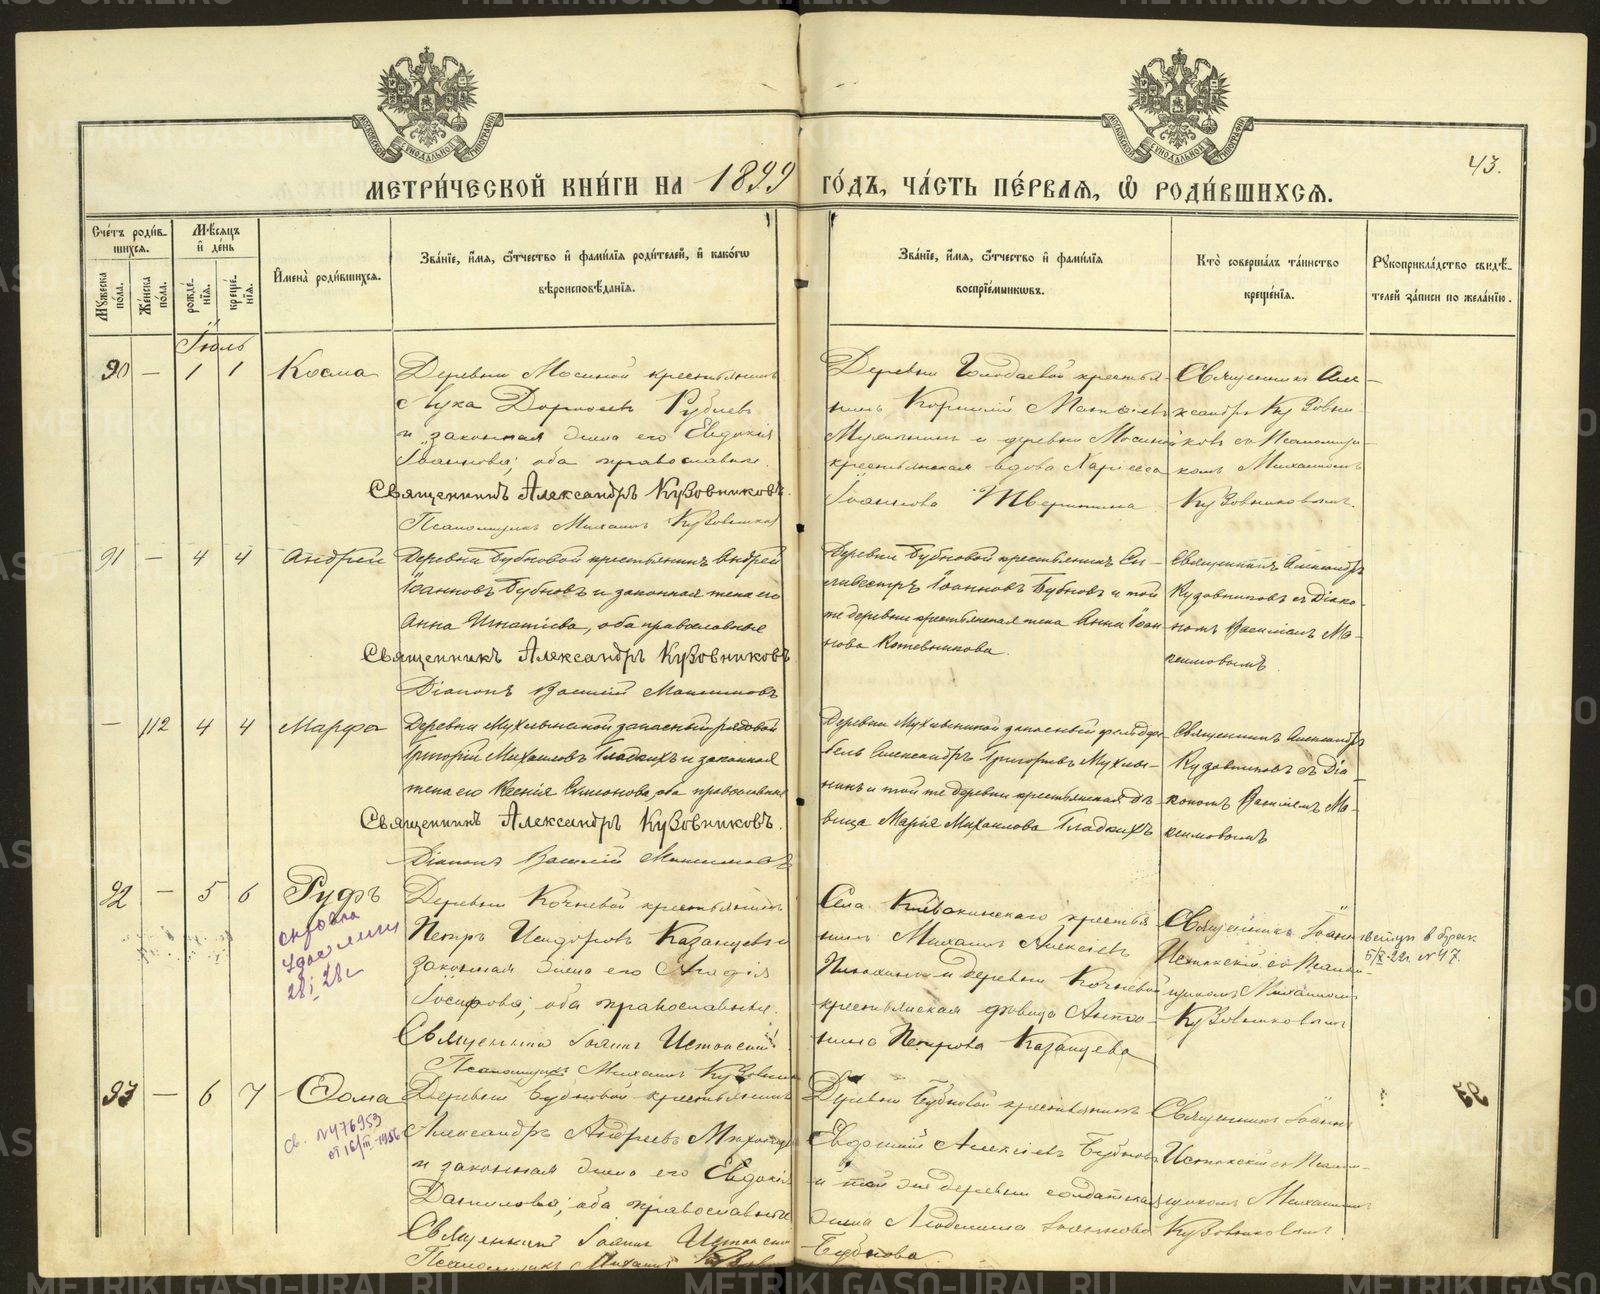 МЕТРИ́ЧЕСКОЙ КНИ́ГИ НА 1899 ГО́ДЪ, ЧА́СТЬ ПЕ́РВАЯ, Ѡ РОДИ́ВШИХСЯ.
43.
Сче́тъ роди́в-
шихся.
Му́жеска по́ла.
Же́нска по́ла.
Мѣ́сяцъ
и де́нь
рожде́нїя.
креще́нїя.
И҆мена̀ роди́вшихся.
Зва́нїе, и҆́мя, ѻ҆́тчество и҆ фами́лїя роди́телей, и҆ како́гѡ
вѣроисповѣ́данїя.
Зва́нїе, и҆́мя, ѻ҆́тчество и҆ фами́лїя
воспрїе́мниковъ.
Кто̀ соверша́лъ та́инство
креще́нїя.
Рукоприкла́дство свидѣ́-
телей за́писи по жела́нїю.
Іюль
90 — 1 1 Косма
Деревни Мосиной крестьянинъ
Лука Рублевъ
и законная жена его Евдокія
Іоаннова, оба православные.
Священникъ Александръ Кузовниковъ.
Псаломщикъ Михаилъ Кузовниковъ
Деревни крестья-
нинъ
и деревни Мосиной
крестьянская вдова
Іоаннова
Священникъ Але-
ксандръ Кузовни-
ковъ съ Псаломщи-
комъ Михаиломъ
Кузовниковымъ.
91 — 4 4 Андрей
Деревни Бубновой крестьянинъ Андрей
Іоанновъ Бубновъ и законная жена его
Анна Игнатіева, оба православные
Священникъ Александръ Кузовниковъ
Діаконъ Василій Максимовъ
Деревни Бубновой крестьянинъ Си-
ливестръ Іоанновъ Бубновъ и той
же деревни крестьянская жена Анна Іоан-
нова Кожевникова.
Священникъ Александръ
Кузовниковъ съ Діако-
номъ Василіемъ Ма-
ксимовымъ.
— 112 4 4 Марфа
Деревни Мухлыниной запасный рядовой
Григорій Михаиловъ Гладкихъ и законная
жена его Ксенія Симеонова, оба православные
Священникъ Александръ Кузовниковъ.
Діаконъ Василій Максимовъ
Деревни Мухлыниной запасный фельдфе-
бель Александръ Григорьевъ Мухлы-
нинъ и той же деревни крестьянская дѣ-
вица Марія Михаилова Гладкихъ
Священникъ Александръ
Кузовниковъ съ Діа-
кономъ Василіемъ Ма-
ксимовымъ
92 — 5 6 Руфъ
28/I 28 г
Деревни Кочневой крестьянинъ
Петръ Исидоровъ Казанцевъ и
законная жена его
Іосифова, оба православные.
Священникъ Іоаннъ Истокскій
Псаломщикъ Михаилъ Кузовников
Села крестья-
нинъ Михаилъ Алексіевъ
и деревни Кочневой
крестьянская дѣвица Анто-
нина Петрова Казанцева
Священникъ Іоаннъ
Истокскій съ Псалом-
щикомъ Михаиломъ
Кузовниковымъ
вступ в брак
5/X-22г №47
93 — 6 7 Ѳома
Св. №476953
от 16/III-1956
Деревни Бубновой крестьянинъ
Александръ Андреевъ
и законная жена его Евдокія
Данилова, оба православные
Священникъ Іоаннъ Истокскій
Псаломщикъ Михаилъ
Деревни Бубновой крестьянинъ
Алексіевъ Бубновъ
и той же деревни солдатская
жена Людмила Іоаннова
Бубнова.
Священникъ Іоаннъ
Истокскій съ Псалом-
щикомъ Михаиломъ
Кузовниковымъ.
METRIKI.GASO-URAL.RU